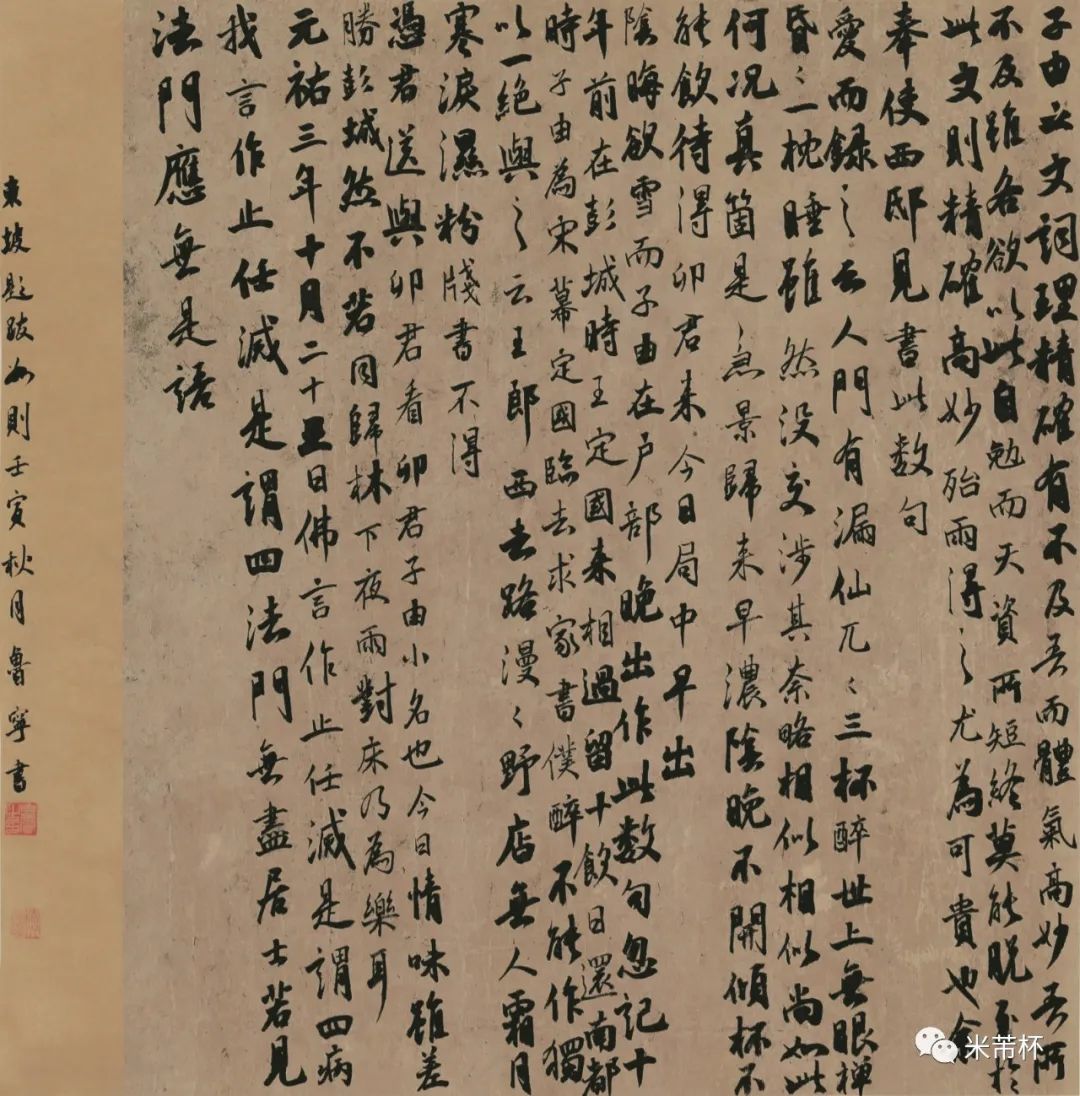 子由之文詞理精確有不及吾而體氣高妙吾所
不及雖各欲以此自勉而天資所短終莫能脫至於
此文則精確高妙殆兩得之尤為可貴也余
奉使西邸見書此數句
愛而錄之云人門有漏仙兀〻三杯醉世上無眼禅
昏〻一枕睡雖然沒交涉其奈略相似相似尚如此
何況真箇是〻急景歸來早濃陰晚不開傾杯不
能飲待得卯君來今日局中早出
陰晦欲雪而子由在戶部晚出作此數句忽記十
年前在彭城時王定國來相過留十飲日還南都
時子由為宋幕定國臨去求家書僕醉不能作獨
以一絕與之云王郎西去路漫〻野店無人霜月
寒淚濕粉牋書不得
憑君送與卯君看卯君子由小名也今日情味雖差
勝彭城然不若同歸林下夜雨對床乃為樂耳
元祐三年十月二十五日佛言作止任滅是謂四病
我言作止任滅是謂四法門無盡居士若見
法門應無是語
東坡題跋如則壬寅秋月魯寧書
米芾杯